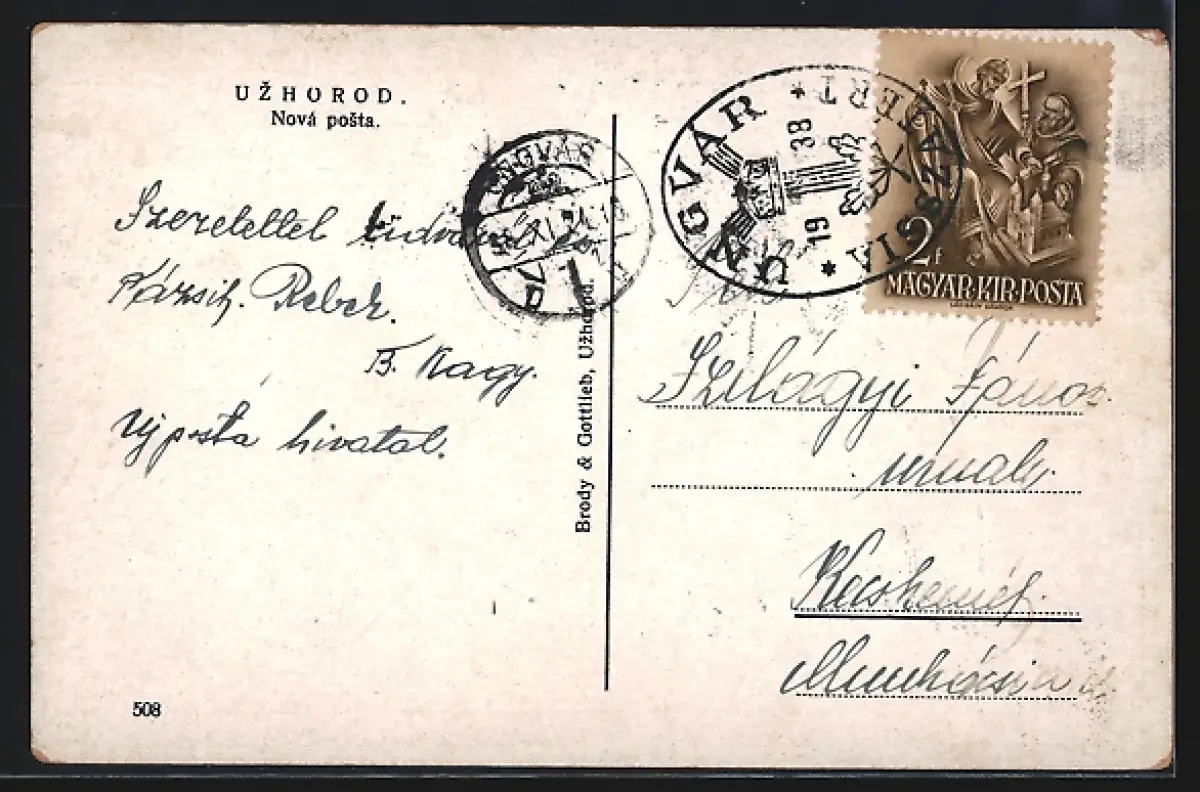 UŽHOROD.
Nová pošta.
Szeretettel üdvözöl
Rebek.
B. Nagy.
Uj posta hivatal.
508
Brody & Gottlieb, Užhorod.
UNGVÁR
38 XI
UNGVÁR * VISSZATÉRT *
1938
2f
MAGYAR·KIR·POSTA
Szilágyi János
urnak.
Kecskemét.
Munkácsi u